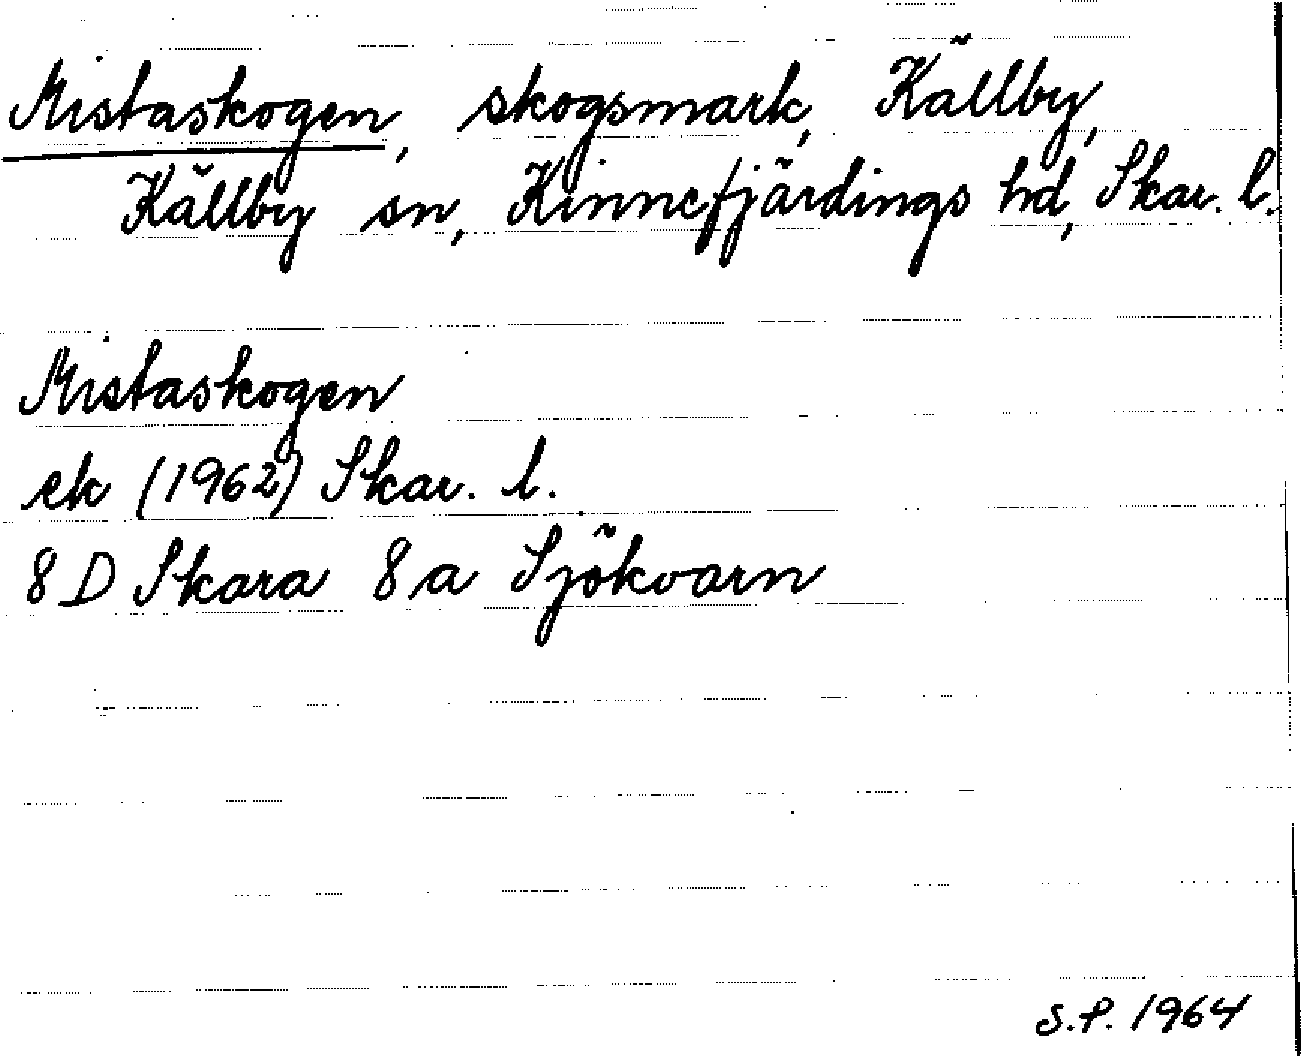 Mistaskogen, skogsmark, Källby,
Källby sn, Kinnefjärdings hd, Skar. l.
Mistaskogen
ek (1962) Skar. l.
8 D Skara 8 a Sjökvarn
S.P. 1964